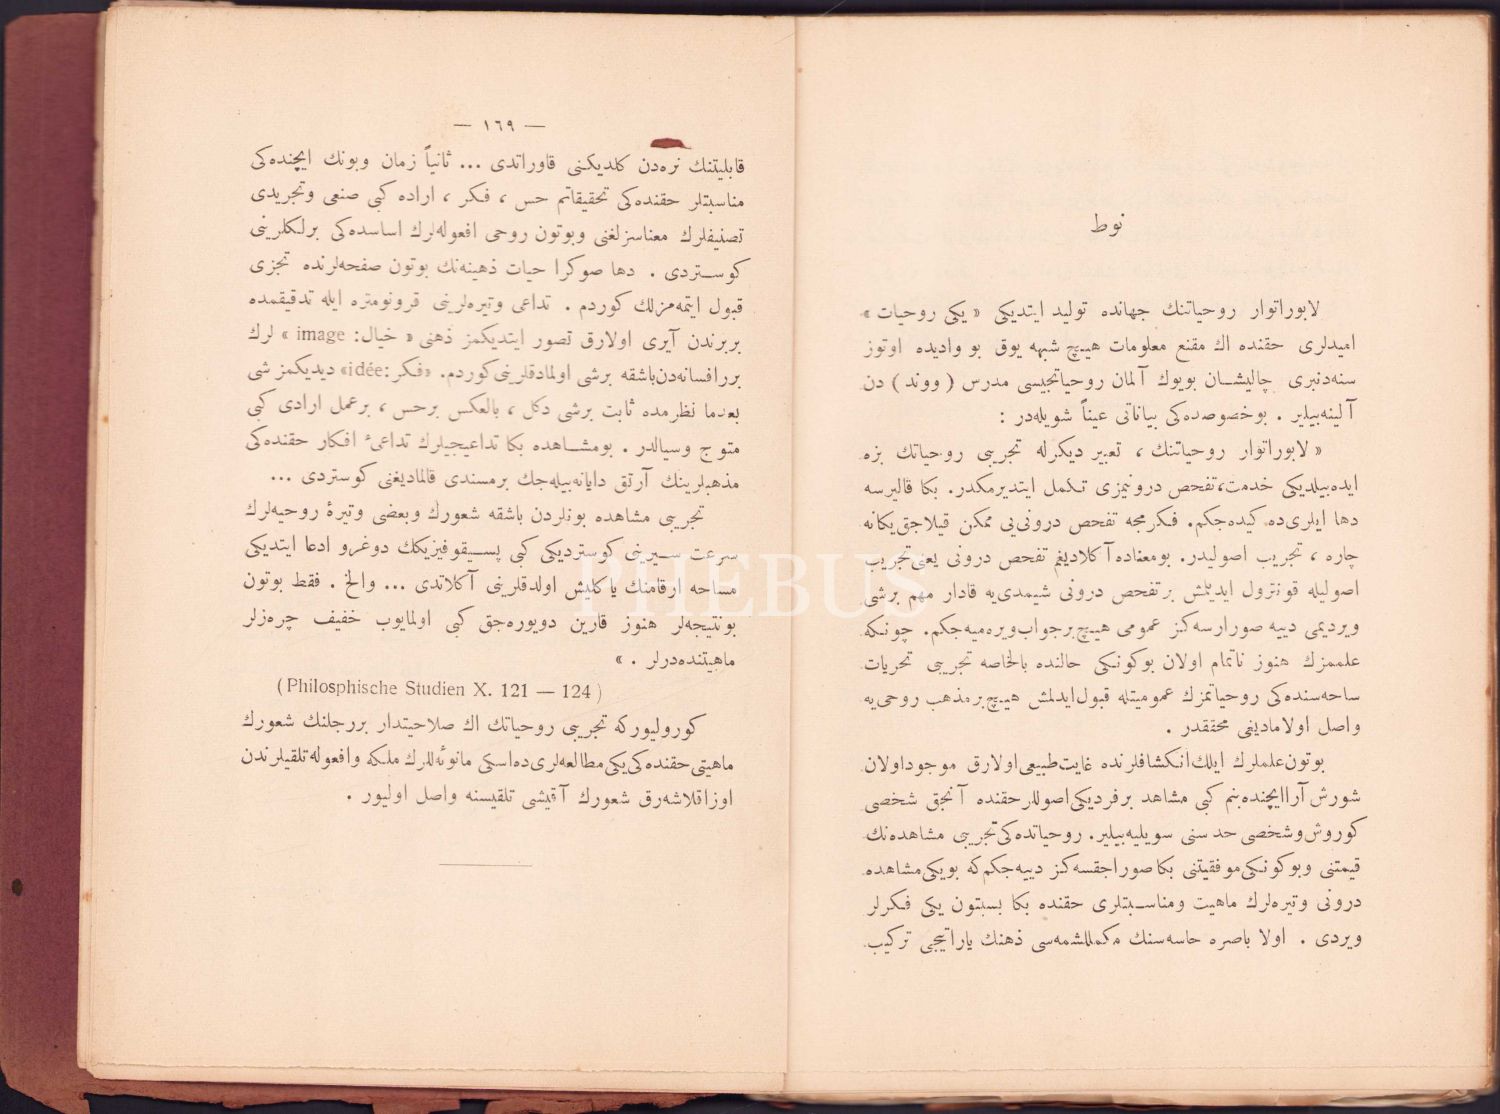 نوط
لابوراتوار روحیاتنك جهانده تولید ایتدیكی « یكی روحیات »
امیدلری حقنده اك مقنع معلومات هیـچ شبهه یوق بو وادیده اوتوز
سنه‌دنبری چالیشـان بویوك آلمان روحیاتجیسی مدرس ( ووند ) دن
آلینه‌بیلیر . بوخصوصده‌كی بیاناتی عیناً شویله‌در :
« لابوراتوار روحیاتنك ، تعبیر دیكرله تجربی روحیاتك بزه
ایده‌بیلدیكی خدمت،تفحص درونیمزی تكمل ایتدیرمكدر. بكا قالیرسه
دها ایلری‌ده كیده‌جكم. فكرمجه تفحص درونی‌یی ممكن قیلاجق‌یكانه
چاره ، تجریب اصولیدر. بومعناده آكلادیغم تفحص درونی یعنی‌تجریب
اصولیله قونترول ایدیلمش برتفحص درونی شیمدی‌یه قادار مهم برشی
ویردیمی دییه صورارسه‌كز عمومی هیـچ‌برجواب‌ویره‌میه‌جكم. چونكه
علممزك هنوز ناتمام اولان بوكونكی حالنده بالخاصه تجربی تحریات
ساحه‌سنده‌كی روحیاتمزك عمومیتله قبول‌ایدلمش هیـچ برمذهب روحی‌یه
واصل اولامادیغی محققدر .
بوتون‌علملرك ایلك‌انكشافلرنده غایت‌طبیعی‌اولارق موجوداولان
شورش آراایچنده‌بنم كبی مشاهد برفردیكی‌اصوللرحقنده آنجق شخصی
كوروش‌وشخصی حدسنی سویلیه‌بیلیر. روحیاتده‌كی‌تجربی مشاهده‌نك
قیمتنی وبوكونكی‌موفقیتنی بكا‌صوراجقسه‌كز دییه‌جكم‌كه بویكی‌مشاهده
درونی وتیره‌لرك ماهیت ومناسـبتلری حقنده بكا بسبتون یكی فكرلر
ویردی . اولا باصره حاسه‌سنك مكمللشمه‌سی ذهنك یاراتیجی تركیب
— ١٦٩ —
قابلیتنك نره‌دن كلدیكنی قاوراتدی ... ثانیاً زمان وبونك ایچنده‌كی
مناسبتلر حقنده‌كی تحقیقاتم حس ، فكر ، اراده كبی صنعی وتجریدی
تصنیفلرك معناسزلغنی وبوتون روحی افعوله‌لرك اساسده‌كی برلكلرینی
كوسـتردی . دها صوكرا حیات ذهینه‌نك بوتون صفحه‌لرنده تجزی
قبول ایتمه‌مزلك كوردم . تداعی وتیره‌لرینی قرونومتره ایله تدقیقمده
بربرندن آیری اولارق تصور ایتدیكمز ذهنی « خیال: image » لرك
بررافسانه‌دن‌باشقه برشی اولمادقلرینی‌كوردم. «فكر:idée» دیدیكمز شی
بعدما نظرمده ثابت برشی دكل ، بالعكس برحس ، برعمل ارادی كبی
متوج وسیالدر . بومشـاهده بكا تداعیجیلرك تداعیٔ افكار حقنده‌كی
مذهبلرینك آرتق دایانه‌بیله‌جك برمسندی قالمادیغنی كوستردی ...
تجربی مشاهده بونلردن باشقه شعورك وبعضی وتیرهٔ روحیه‌لرك
سرعت سـیرینی كوستردیكی كبی پسـیقوفیزیكك دوغرو ادعا ایتدیكی
مساحه ارقامنك یاكلیش اولدقلرینی آكلاتدی ... والخ . فقط بوتون
بونتیجه‌لر هنوز قارین دویوره‌جق كبی اولمایوب خفیف چره‌زلر
ماهیتنده‌درلر . »
(Philosphische Studien X. 121 — 124)
كورولیوركه تجربی روحیاتك اك صلاحیتدار بررجلنك شعورك
ماهیتی‌حقنده‌كی‌یكی‌مطالعه‌لری‌ده‌اسكی مانوئه‌للرك ملكه وافعوله‌تلقیلرندن
اوزاقلاشه‌رق شعورك آقیشی تلقیسنه واصل اولیور .
PHEBUS